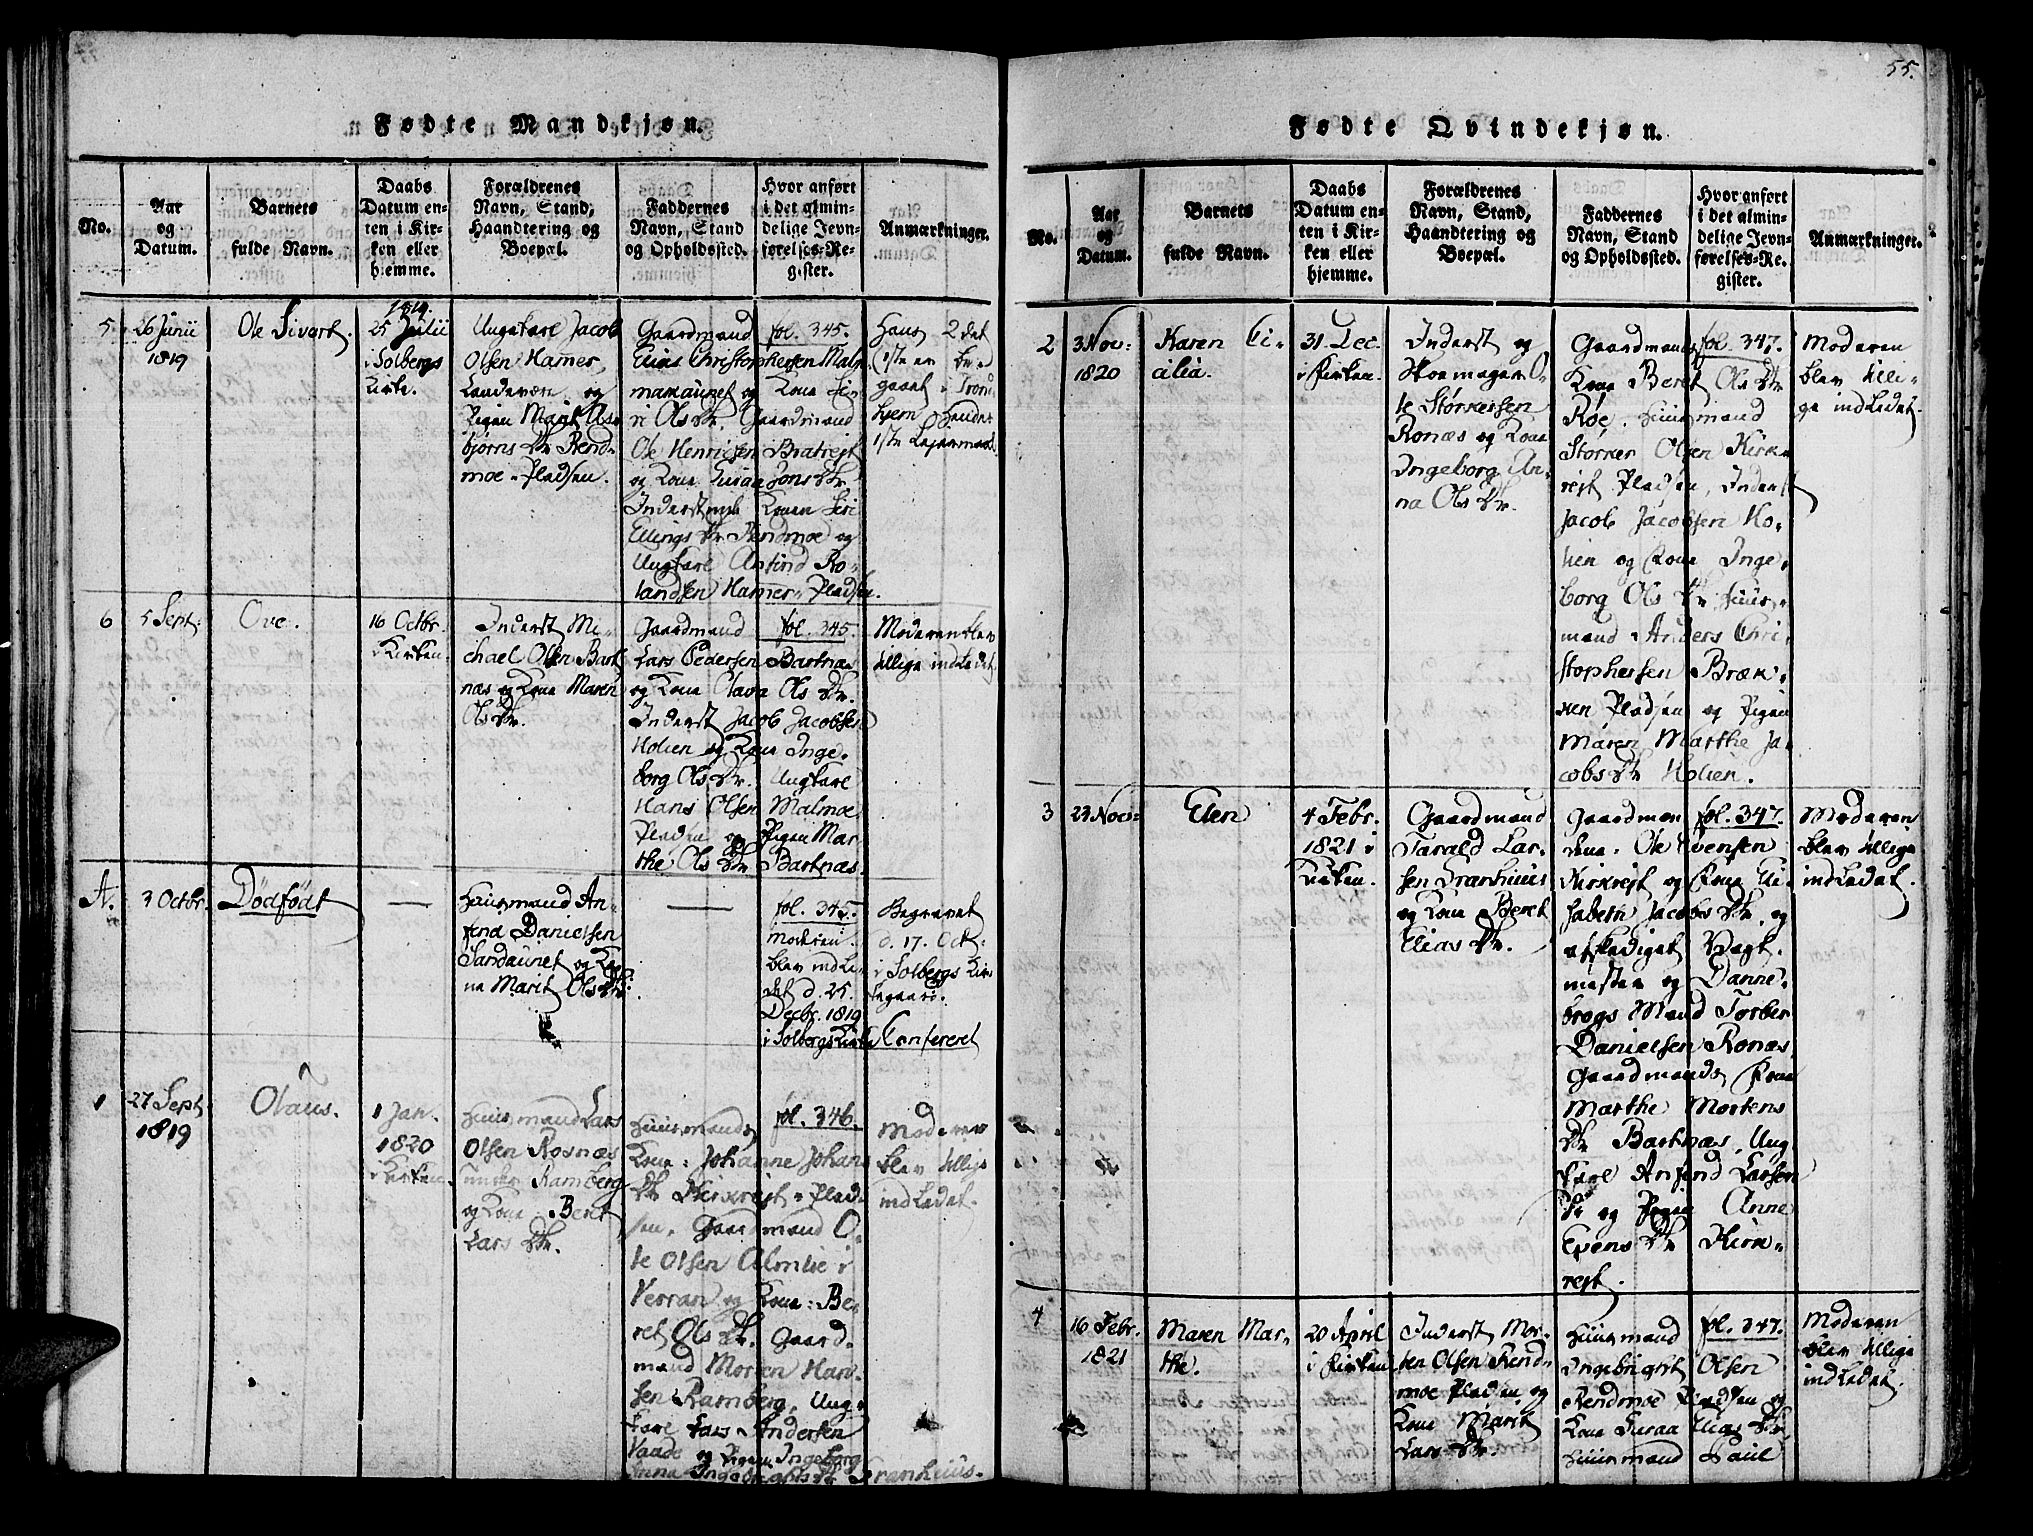 55.
Fødte Mandkjøn.
No.
Aar
og
Datum.
Barnets
fulde Navn.
Daabs
Datum en-
ten i Kir-
ken eller
hjemme.
Forældrenes
Navn, Stand,
Haandtering og
Boepæl.
Faddernes
Navn, Stand
og Opholdssted.
Hvor anført
i det almin-
delige Jevn-
førelses-Re-
gister.
Anmærkninger.
5
26 Junii
1819
Ole Sivert.
1819.
25 Julii
i Solbergs
Kirke.
Ungkarl Jacob
Olsen Hamer,
Landeværn og
Pigen Marit As-
bjørns Dtr Rend-
moe-Pladsen.
Gaardmand
Elias Christophersen Malm
marauret og Kone Si-
ri Ols Dtr. Gaardmand
Ole Henrichsen Bratrejt
og Kone Guraa Jons Dtr
Inderstens Konen Siri
Ellings Dtr Rendmoe og
Ungkarl Anfind Ro-
landsen Hamer-Pladsen.
fol. 345.
Hans 2det
(1ste er be-
gaaet i Trond
hjem Hendes
1ste Lejermaal
6
5 Sept:
Ove.
16 Octbr.
i Kirken.
Inderst Mi-
chael Olsen Bart
næs og Kone Maren
Ols Dtr.
Gaardmand
Lars Pedersen Bartnæs
og Kone Olava Ols Dtr.
Inderst Jacob Jacobsen
Holien og Kone Inge-
borg Ols Dtr. Ungkarl
Hans Olsen Malmoe
Pladsen og Pigen Mar-
the Ols Dtr Bartnæs.
fol. 345.
Moderen blev
tillige indledet
A.
3 Octbr.
Dödfödt
—
Huusmand An-
find Danielsen
Sandauret og Ko-
ne Marit Ols Dtr.
—
fol. 345.
moderen
blev indle-
det d. 25.
Decbr. 1819
i Solbergs Kirke
Begravet
d. 17. Oct:
i Solbergs Kir-
kegaard.
Confereret
1
27 Sept
1819
Olaus.
1 Jan.
1820
i Kirken.
Huusmand Lars
Olsen Rosnæs
under Ramberg
og Kone Beret
Lars Dtr.
Huusmands
Kone: Johanne Johans
Dtr Kirkrejt-Plad-
sen, Gaardmand O-
le Olsen Almlie i
Verran og Kone: Be-
ret Ols Dtr. Gaard-
mand Morten Han-
sen Ramberg, Ung-
karl Lars Andersen
Vaade og Pigen Ingeborg
Anna Ingebrigts Dtr Tranhuus.
fol. 346.
Moderen
blev tillige
indledet.
Fødte Qvindekjøn.
No.
Aar
og
Datum.
Barnets
fulde Navn.
Daabs
Datum en-
ten i Kir-
ken eller
hjemme.
Forældrenes
Navn, Stand,
Haandtering og
Boepæl.
Faddernes
Navn, Stand
og Opholdssted.
Hvor anført
i det almin-
delige Jevn-
førelses-Re-
gister.
Anmærkninger.
2
3 Nov:
1820
Karen Ci-
cilia.
31 Dec.
i Kirken.
Inderst og
Skoemager O-
le Størkersen
Ronæs og Kone
Ingeborg An-
na Ols Dtr.
Gaardmands
Kone Beret Ols Dtr
Röe. Huusmand
Størker Olsen Kirk-
rejt Pladsen, Inderst
Jacob Jacobsen Ho-
lien og Kone Inge-
borg Ols Dtr. Huus-
mand Anders Chri-
stophersen Bræk-
ken Pladsen og Pigen
Maren Marthe Ja-
cobs Dtr Holien.
fol. 347.
Moderen
blev tilli-
ge indledet.
3
23 Nov:
Elen
4 Febr.
1821 i
Kirken.
Gaardmand
Tarald Lar-
sen Tranhuus
og Kone Beret
Elias Dtr.
Gaardmæn
dene. Ole Evensen
Kirkrejt og Kone Eli-
sabeth Jacobs Dtr, og
afskediget Vagt-
mester og Danne-
brogs Mand Torber
Danielsen Ronæs
Gaardmands Kone
Marthe Mortens
Dtr Bartnæs, Ung-
karl Anfind Larsen
og Pigen Anne
Evens Dtr Kirk-
rejt.
fol. 347.
Moderen
blev tillige
indledet.
4
16 Febr.
1821
Maren Mar-
the.
20 April
i Kirken
Inderst Mor-
ten Olsen Rend-
moe Pladsen og
Kone Marit
Lars Dtr.
Huusmand
Ingebrigt Olsen
Rendmoe Pladsen og
Kone Guraa Elias Dtr,
Huusmand Paul
fol. 347.
Moderen
blev tillige
indledet.